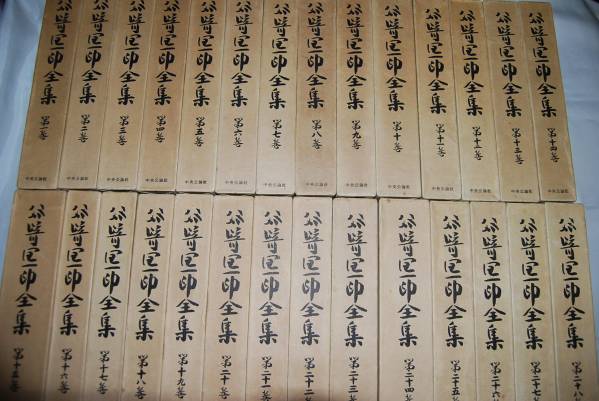 谷崎潤一郎全集 第一巻 中央公論社
谷崎潤一郎全集 第二巻 中央公論社
谷崎潤一郎全集 第三巻 中央公論社
谷崎潤一郎全集 第四巻 中央公論社
谷崎潤一郎全集 第五巻 中央公論社
谷崎潤一郎全集 第六巻 中央公論社
谷崎潤一郎全集 第七巻 中央公論社
谷崎潤一郎全集 第八巻 中央公論社
谷崎潤一郎全集 第九巻 中央公論社
谷崎潤一郎全集 第十巻 中央公論社
谷崎潤一郎全集 第十一巻 中央公論社
谷崎潤一郎全集 第十二巻 中央公論社
谷崎潤一郎全集 第十三巻 中央公論社
谷崎潤一郎全集 第十四巻 中央公論社
谷崎潤一郎全集 第十五巻
谷崎潤一郎全集 第十六巻
谷崎潤一郎全集 第十七巻
谷崎潤一郎全集 第十八巻
谷崎潤一郎全集 第十九巻
谷崎潤一郎全集 第二十巻
谷崎潤一郎全集 第二十一巻
谷崎潤一郎全集 第二十二巻
谷崎潤一郎全集 第二十三巻
谷崎潤一郎全集 第二十四巻
谷崎潤一郎全集 第二十五巻
谷崎潤一郎全集 第二十六巻
谷崎潤一郎全集 第二十七巻
谷崎潤一郎全集 第二十八巻